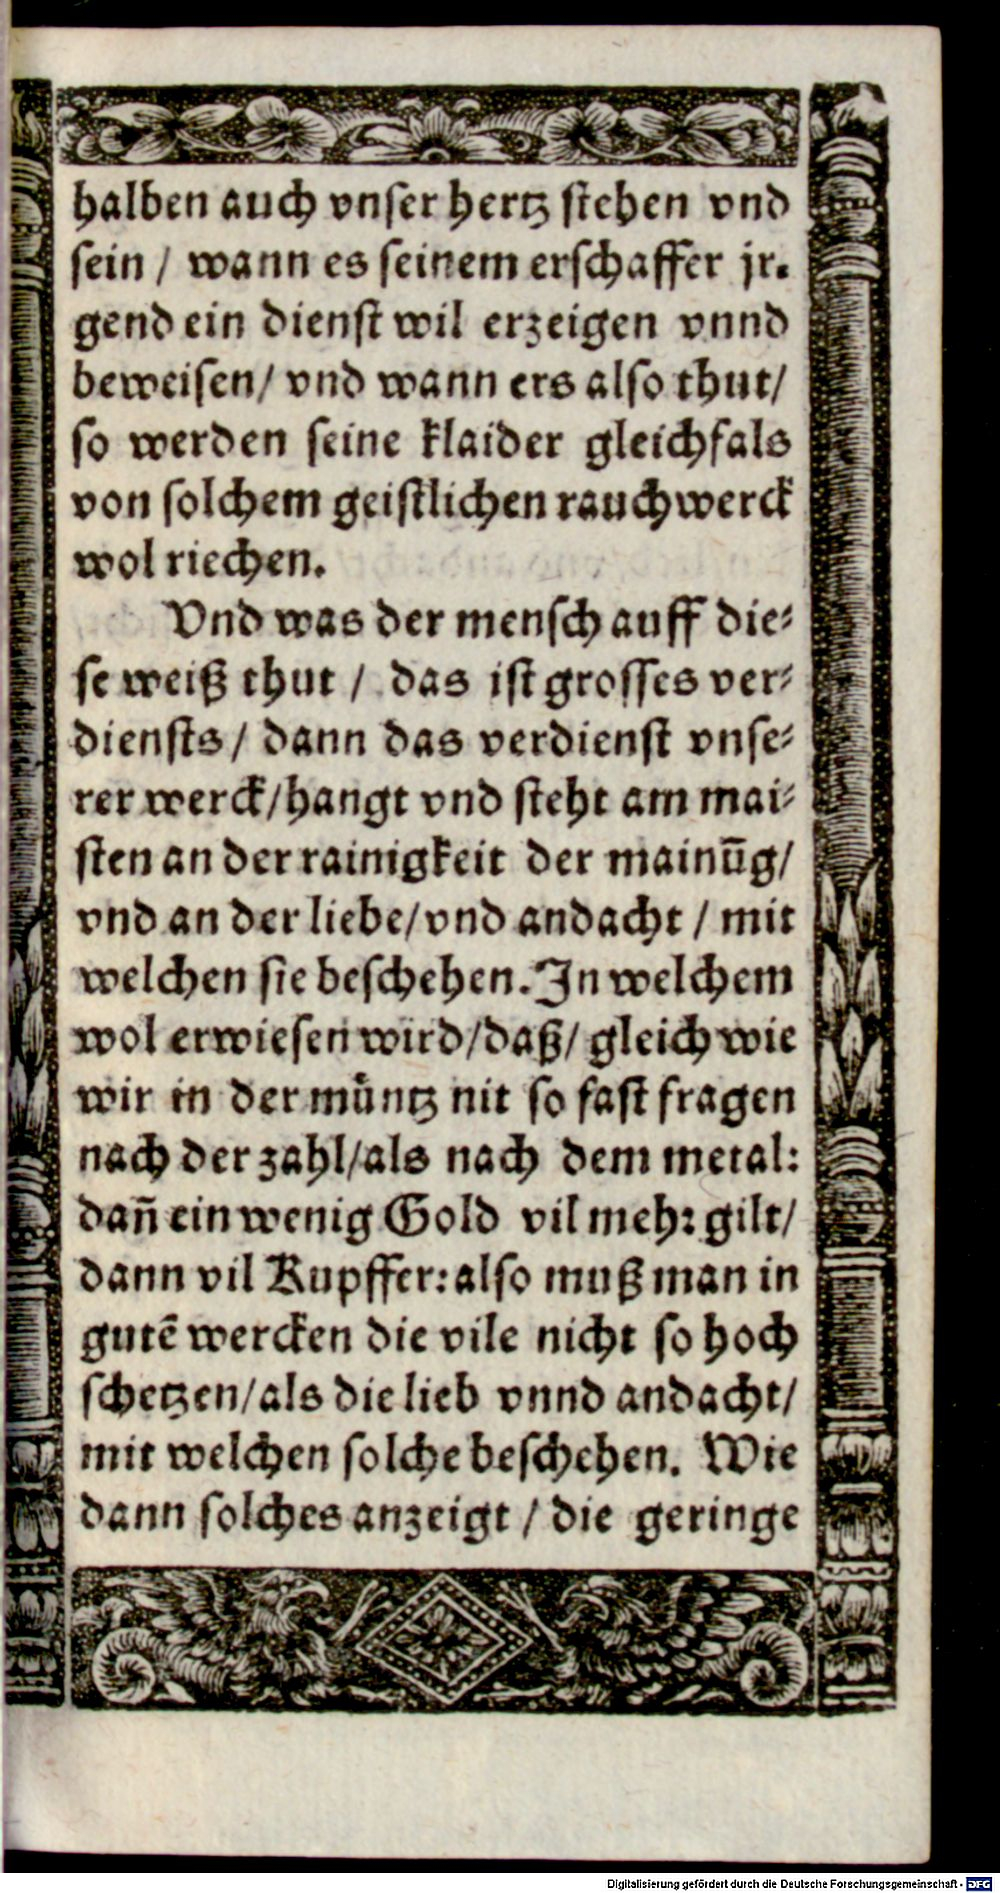 halben auch vnser hertz stehen vnd
sein / wann es seinem erschaffer jr-
gend ein dienst wil erzeigen vnnd
beweisen / vnd wann ers also thut /
so werden seine klaider gleichfals
von solchem geistlichen rauchwerck
wol riechen.
Vnd was der mensch auff die-
se weiß thut / das ist grosses ver-
diensts / dann das verdienst vnse-
rer werck / hangt vnd steht am mai-
sten an der rainigkeit der mainūg /
vnd an der liebe / vnd andacht / mit
welchen sie beschehen. In welchem
wol erwiesen wird / daß / gleich wie
wir in der müntz nit so fast fragen
nach der zahl / als nach dem metal:
dañ ein wenig Gold vil mehr gilt /
dann vil Kupffer: also muß man in
gutē wercken die vile nicht so hoch
schetzen / als die lieb vnnd andacht /
mit welchen solche beschehen. Wie
dann solches anzeigt / die geringe
Digitalisierung gefördert durch die Deutsche Forschungsgemeinschaft - DFG